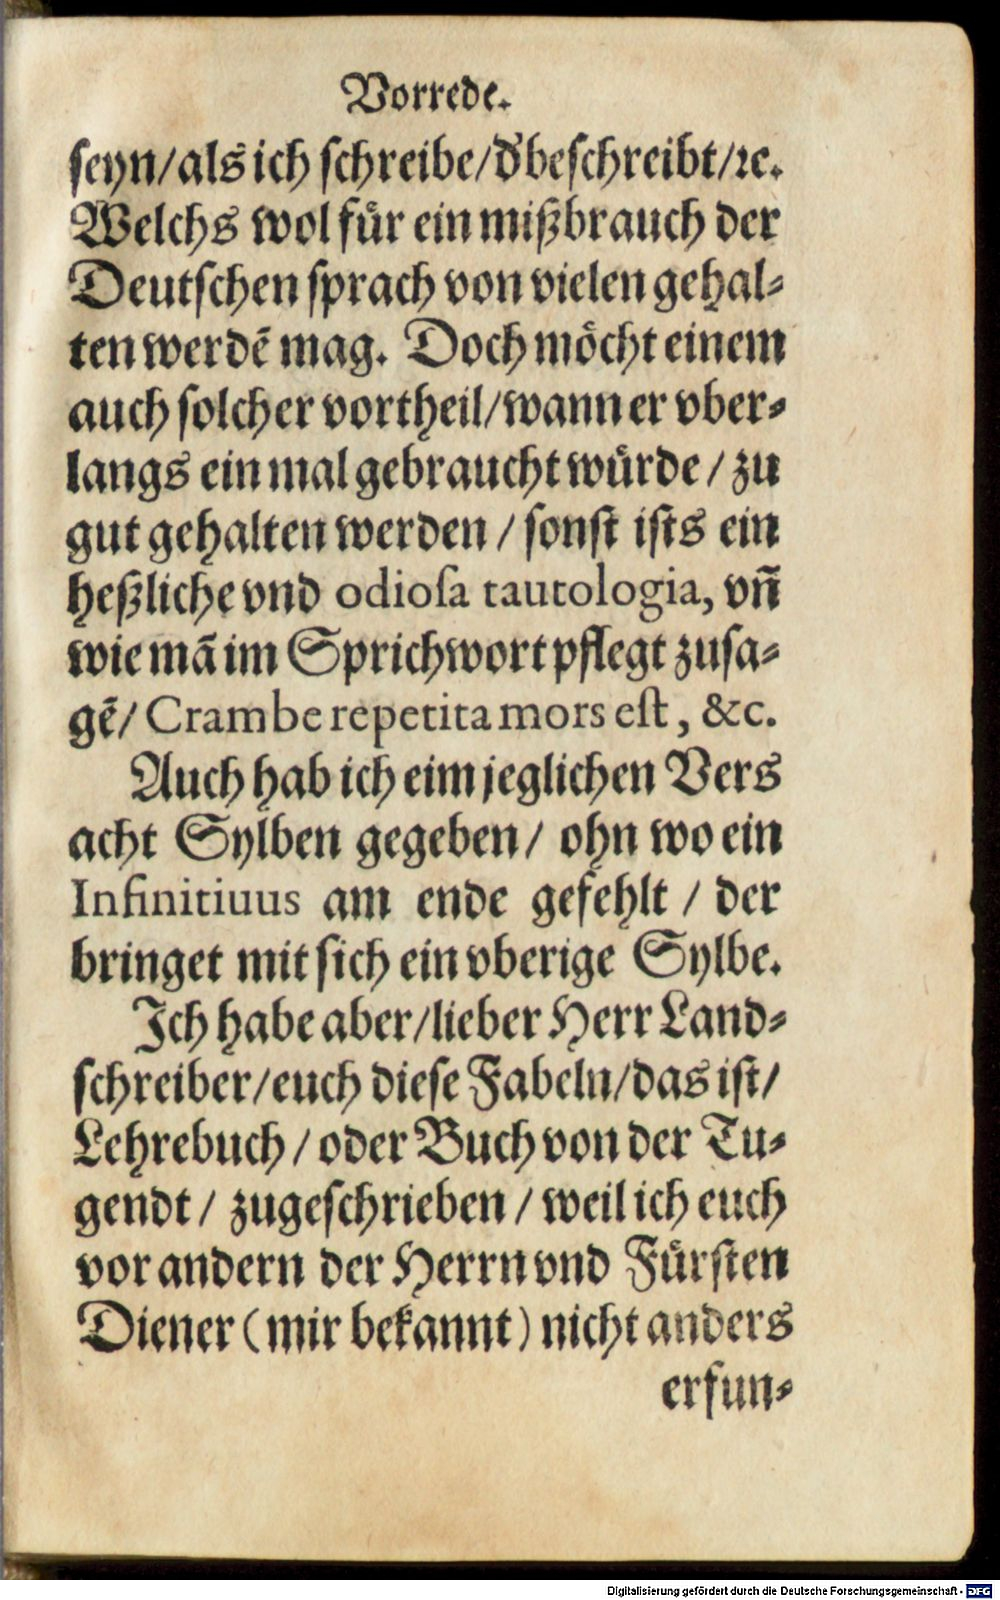 Vorrede.
seyn/als ich schreibe/d'beschreibt/ꝛc.
Welchs wol für ein mißbrauch der
Deutschen sprach von vielen gehal-
ten werdē mag. Doch möcht einem
auch solcher vortheil/wann er vber-
langs ein mal gebraucht würde / zu
gut gehalten werden / sonst ists ein
heßliche vnd odiosa tautologia, vñ
wie mā im Sprichwort pflegt zusa-
gē/ Crambe repetita mors est, &c.
Auch hab ich eim jeglichen Vers
acht Sylben gegeben/ ohn wo ein
Infinitiuus am ende gefehlt / der
bringet mit sich ein vberige Sylbe.
Ich habe aber/lieber Herr Land-
schreiber/euch diese Fabeln/das ist/
Lehrebuch / oder Buch von der Tu-
gendt / zugeschrieben / weil ich euch
vor andern der Herrn vnd Fürsten
Diener (mir bekannt) nicht anders
erfun-
Digitalisierung gefördert durch die Deutsche Forschungsgemeinschaft - DFG